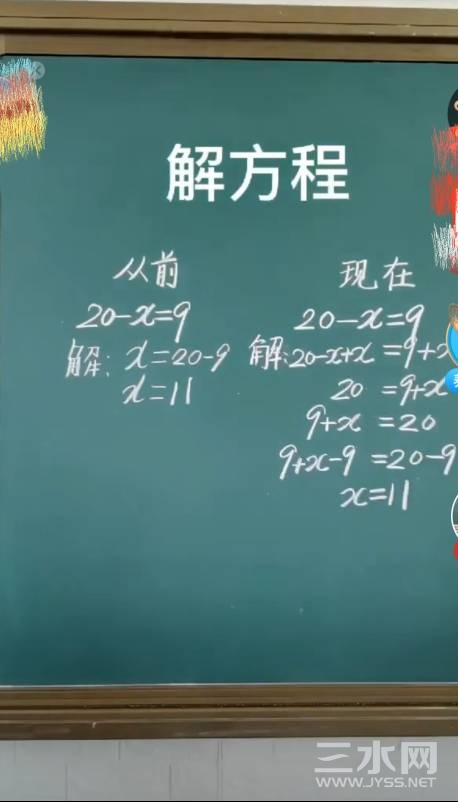 解方程
从前
20-x=9
解: x=20-9
x=11
现在
20-x=9
解:20-x+x=9+x
20=9+x
9+x=20
9+x-9=20-9
x=11
三水网
WWW.JYSS.NET